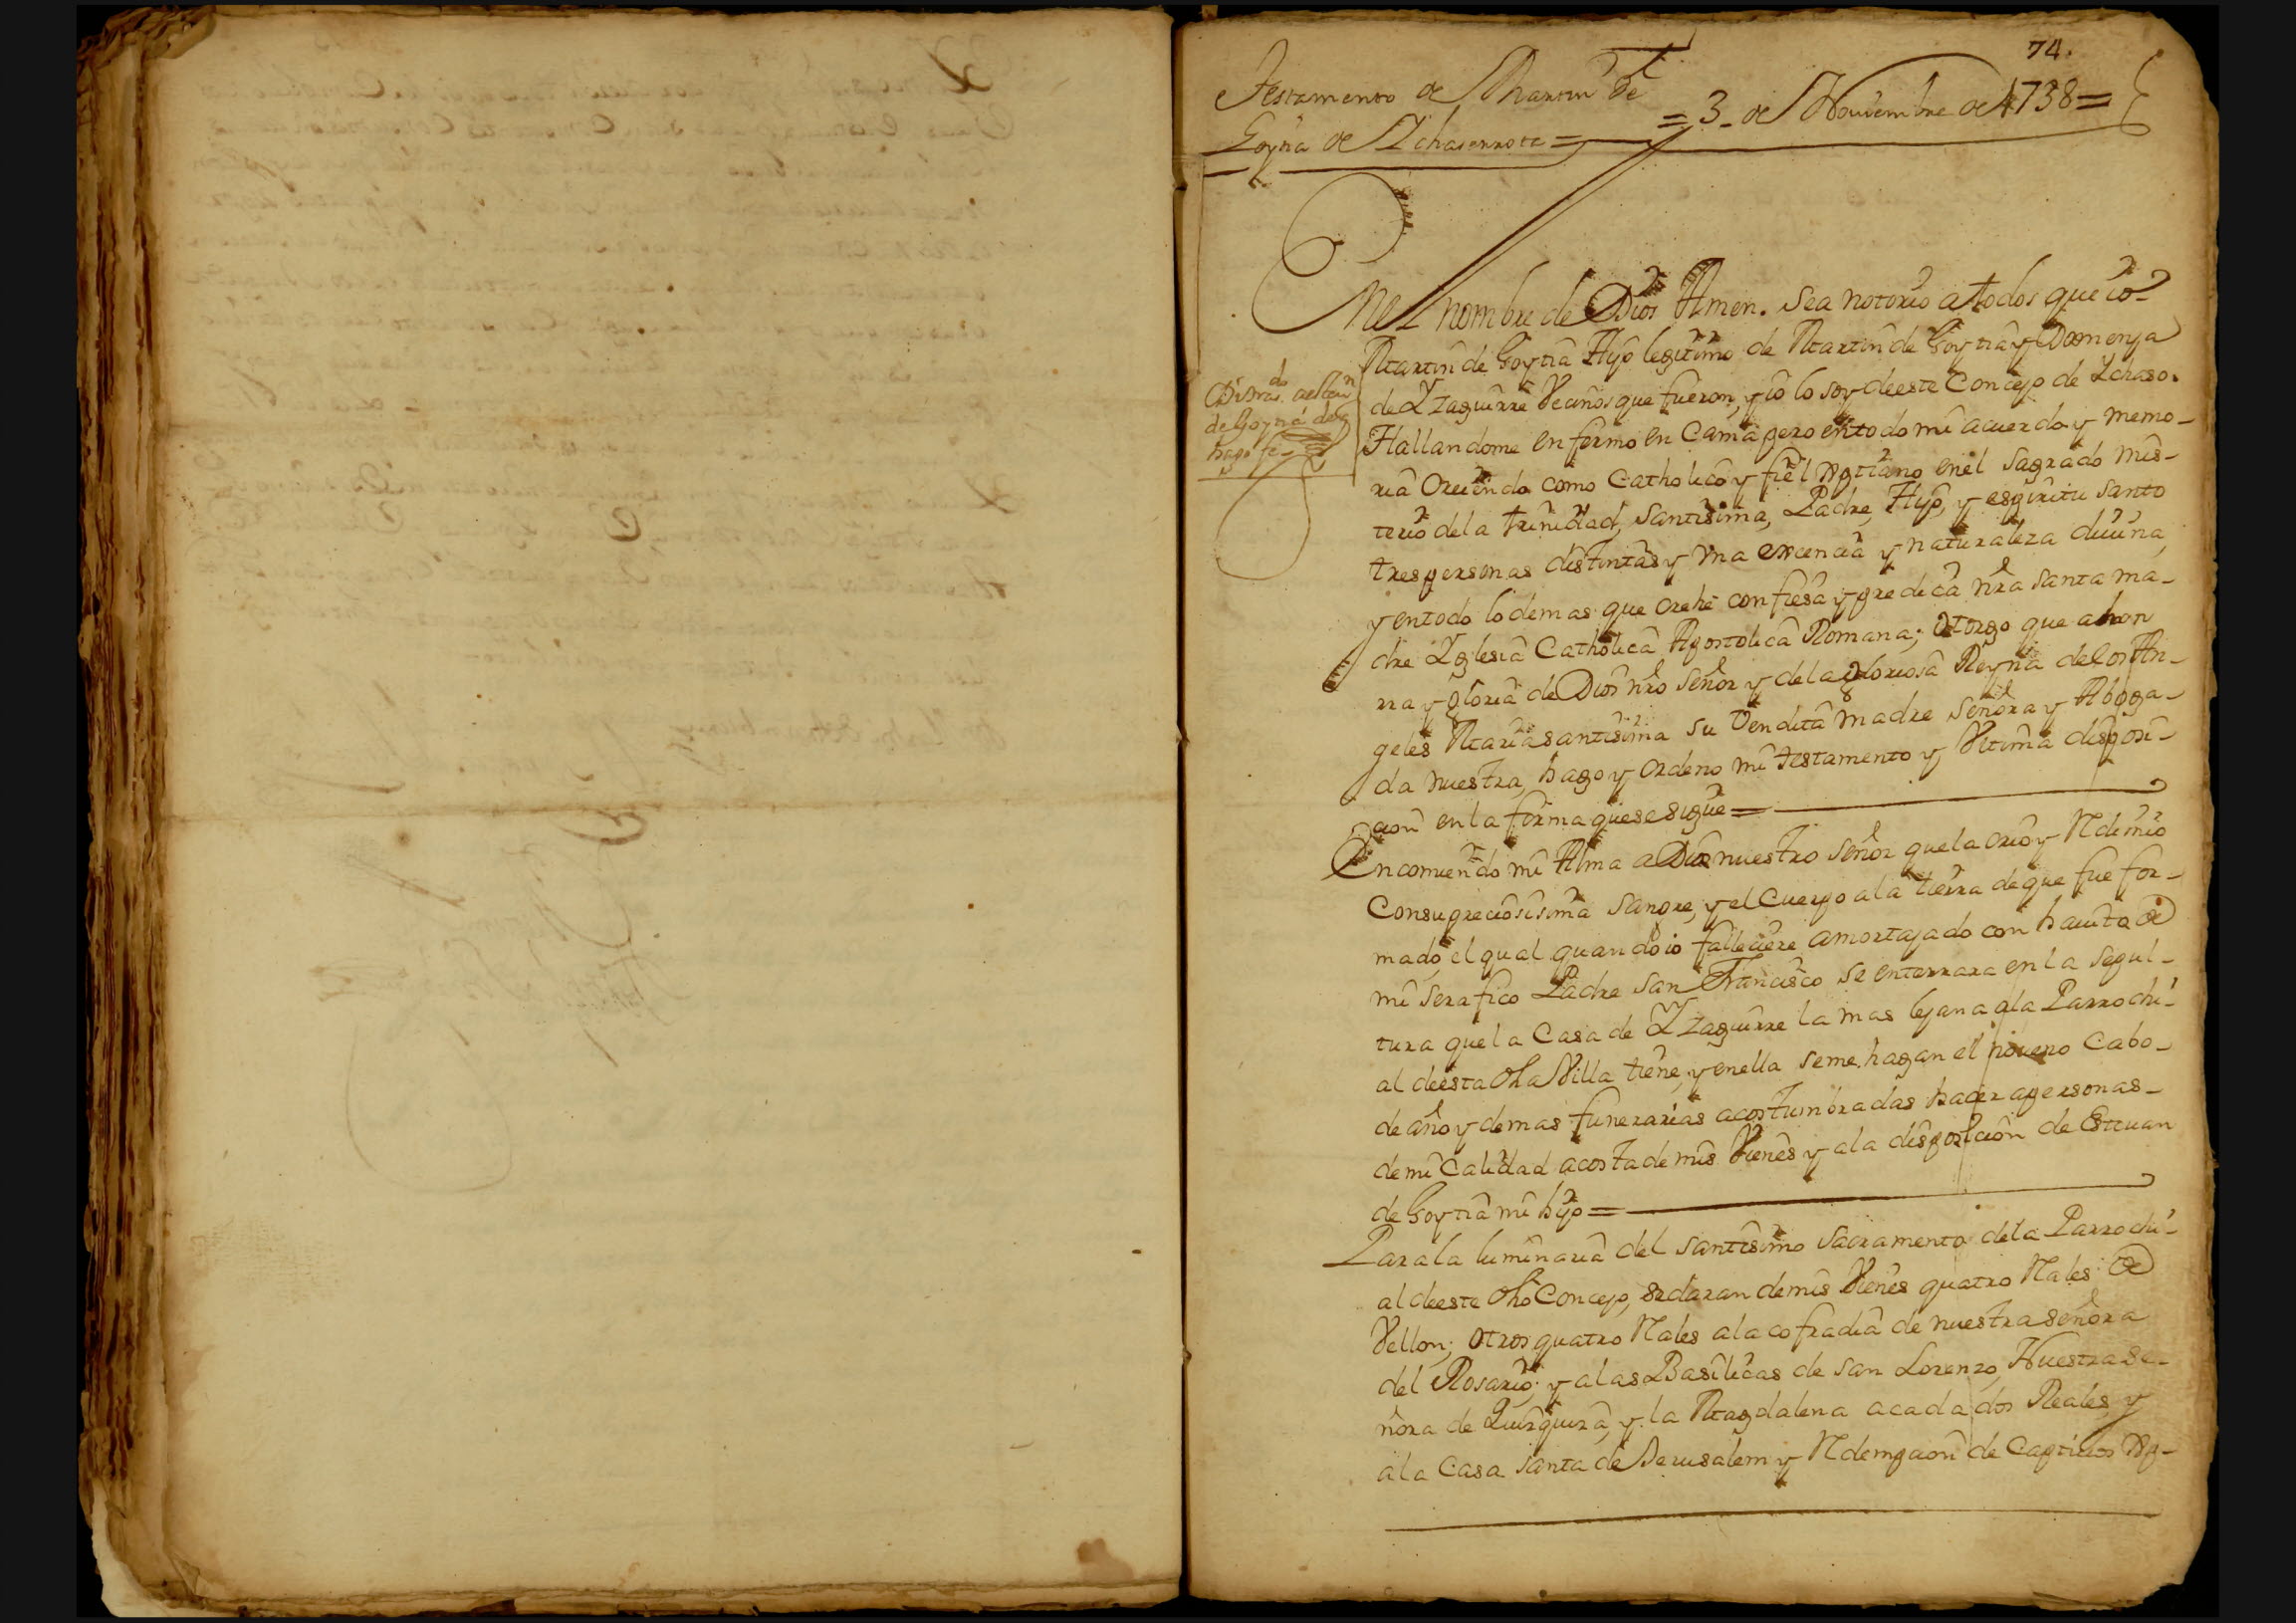 74.
Testamento de Martin de
Goytia de Ichasorrotz =
= 3 de Nouiembre de 1738 =
En el nombre de Dios Amen. Sea notorio a todos que io
Martin de Goytia Hijo legitimo de Martin de Goytia y Domenja
de Yzaguirre Vecinos que fueron, y io lo soy de este Concejo de Ichaso.
Hallandome enfermo en Cama pero en todo mi acuerdo y memo-
ria Creiendo como Catholico y fiel Xptiano en el sagrado mis-
terio de la trinidad, santisima, Padre, Hijo, y espiritu santo
tres personas distintas y vna excencia y naturaleza diuina,
y en todo lo demas que crehe confiesa y predica nra santa ma-
dre Yglesia Catholica Apostolica Romana; otorgo que a hon
rra y gloria de Dios nro señor y de la gloriosa Reyna de los An-
geles Maria santisima su Vendita madre señora y Aboga-
da nuestra, hago y ordeno mi testamento y Vltima disposi-
cion en la forma que se sigue =
Encomiendo mi Alma a Dios nuestro señor que la crio y Rdimio
Con su preciosisima sangre, y el Cuerpo a la tierra de que fue for-
mado, el qual quando io falleciere amortajado con hauito de
mi serafico Padre san Francisco se enterrara en la sepul-
tura que la Casa de Yzaguirre la mas lejana a la Parrochi-
al de esta dha Villa tiene, y en ella se me hagan el noueno Cabo-
de año y demas funerarias acostumbradas hacer a personas-
de mi Calidad a costa de mis Vienes y a la disposicion de Esteuan
de Goytia mi hijo =
Para la luminaria del santisimo sacramento de la Parrochi-
al de este dho Concejo, se daran de mis Vienes quatro Rales de
Vellon; otros quatro Rales a la cofradia de nuestra señora
del Rosario; y a las Basilicas de san Lorenzo, Nuestra se-
ñora de Quirquira, y la Magdalena a cada dos Reales, y
a la Casa santa de Jerusalem y Rdempcion de Captiuos Xp-
de Goytia doy
hago fe